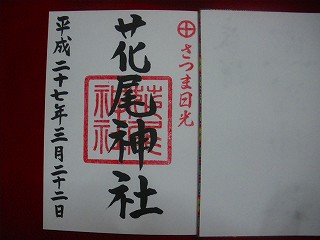 さつま日光
花尾神社
平成二十七年三月二十二日